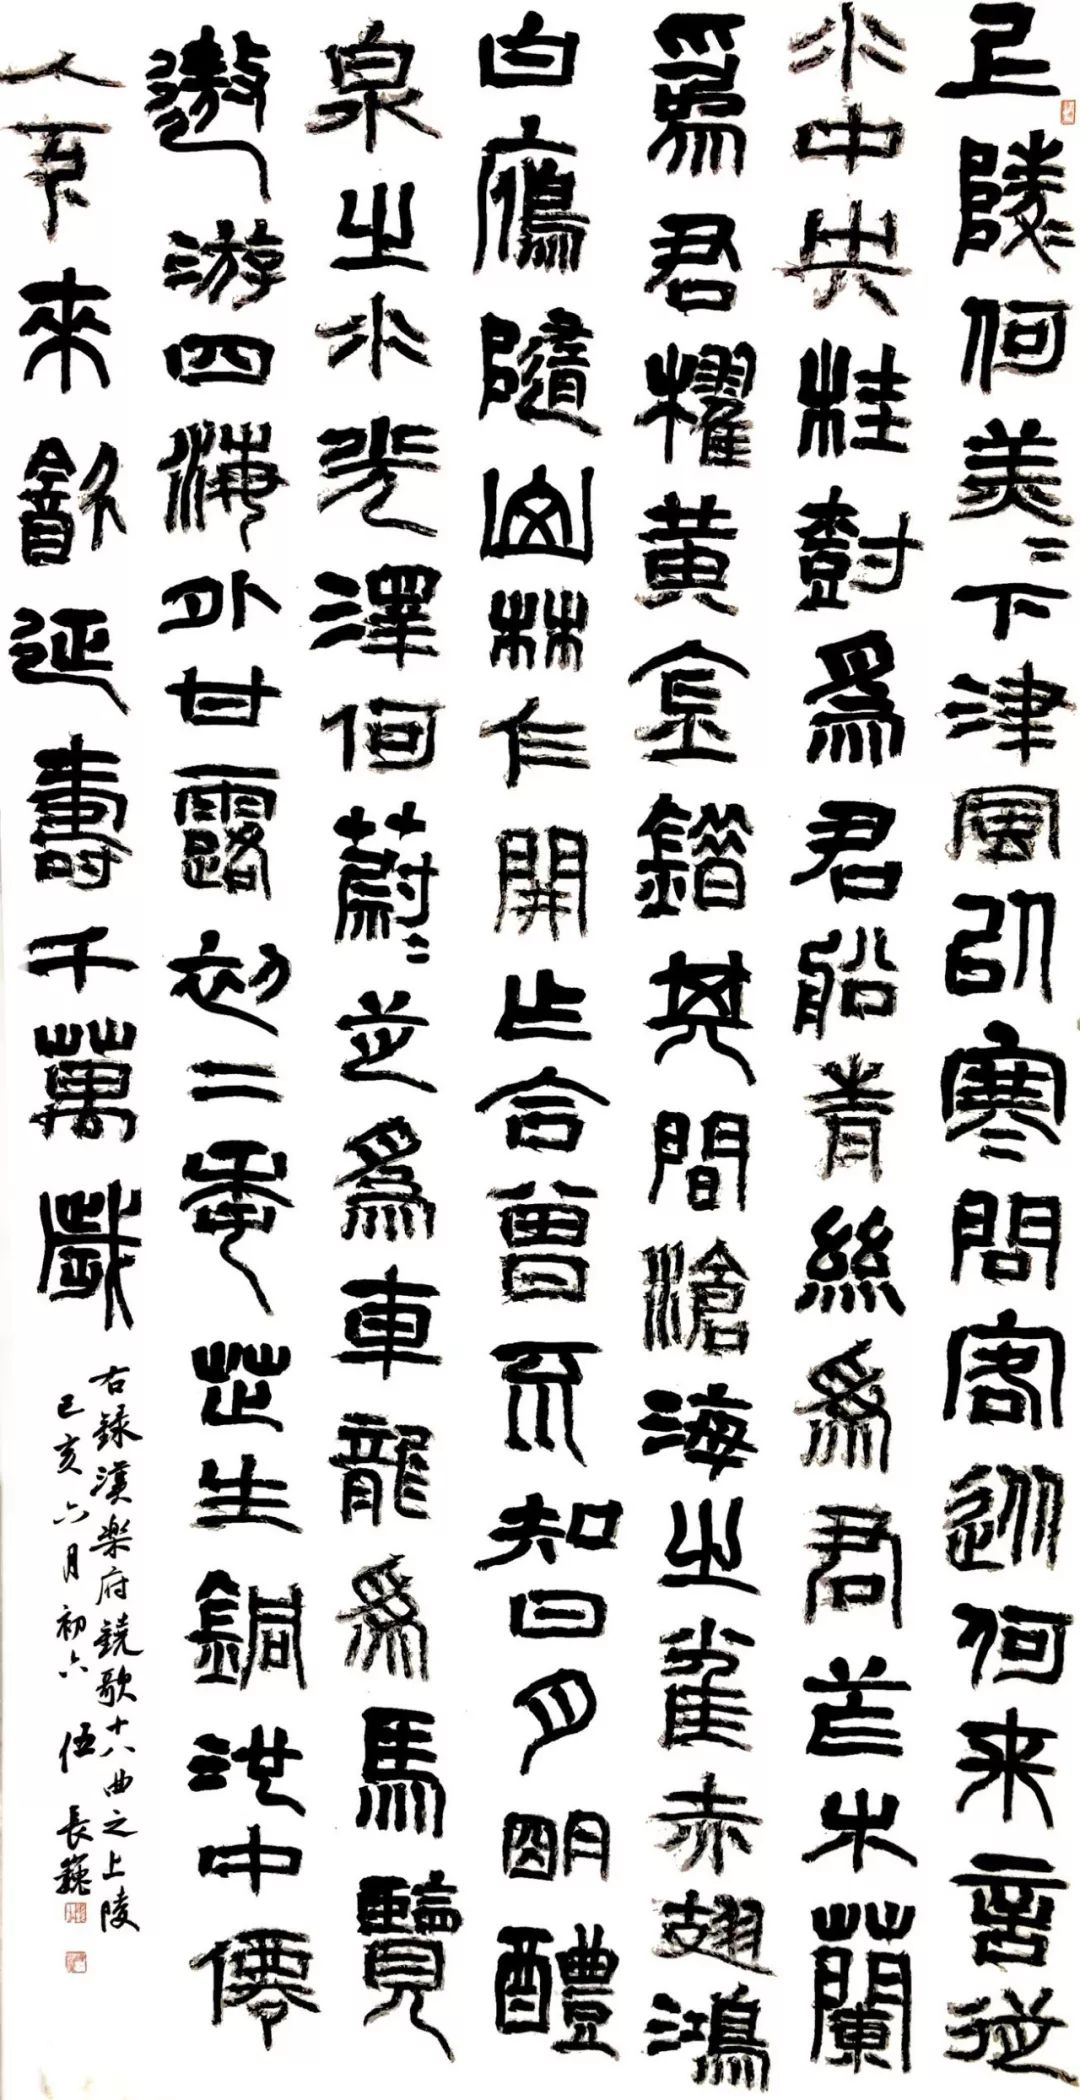 上陵何美〻下津風以寒問客從何来言從
水中央桂樹爲君船青絲爲君笮木蘭
爲君櫂黄金錯其間滄海之雀赤翅鴻
白鴈隨山林乍開乍合曾不知日月明醴
泉之水光澤何蔚〻芝爲車龍爲馬覽
遨游四海外甘露初二年芝生銅池中僊
人下来飲延壽千萬歲
右録漢楽府鐃歌十八曲之上陵
己亥六月初六 伍長